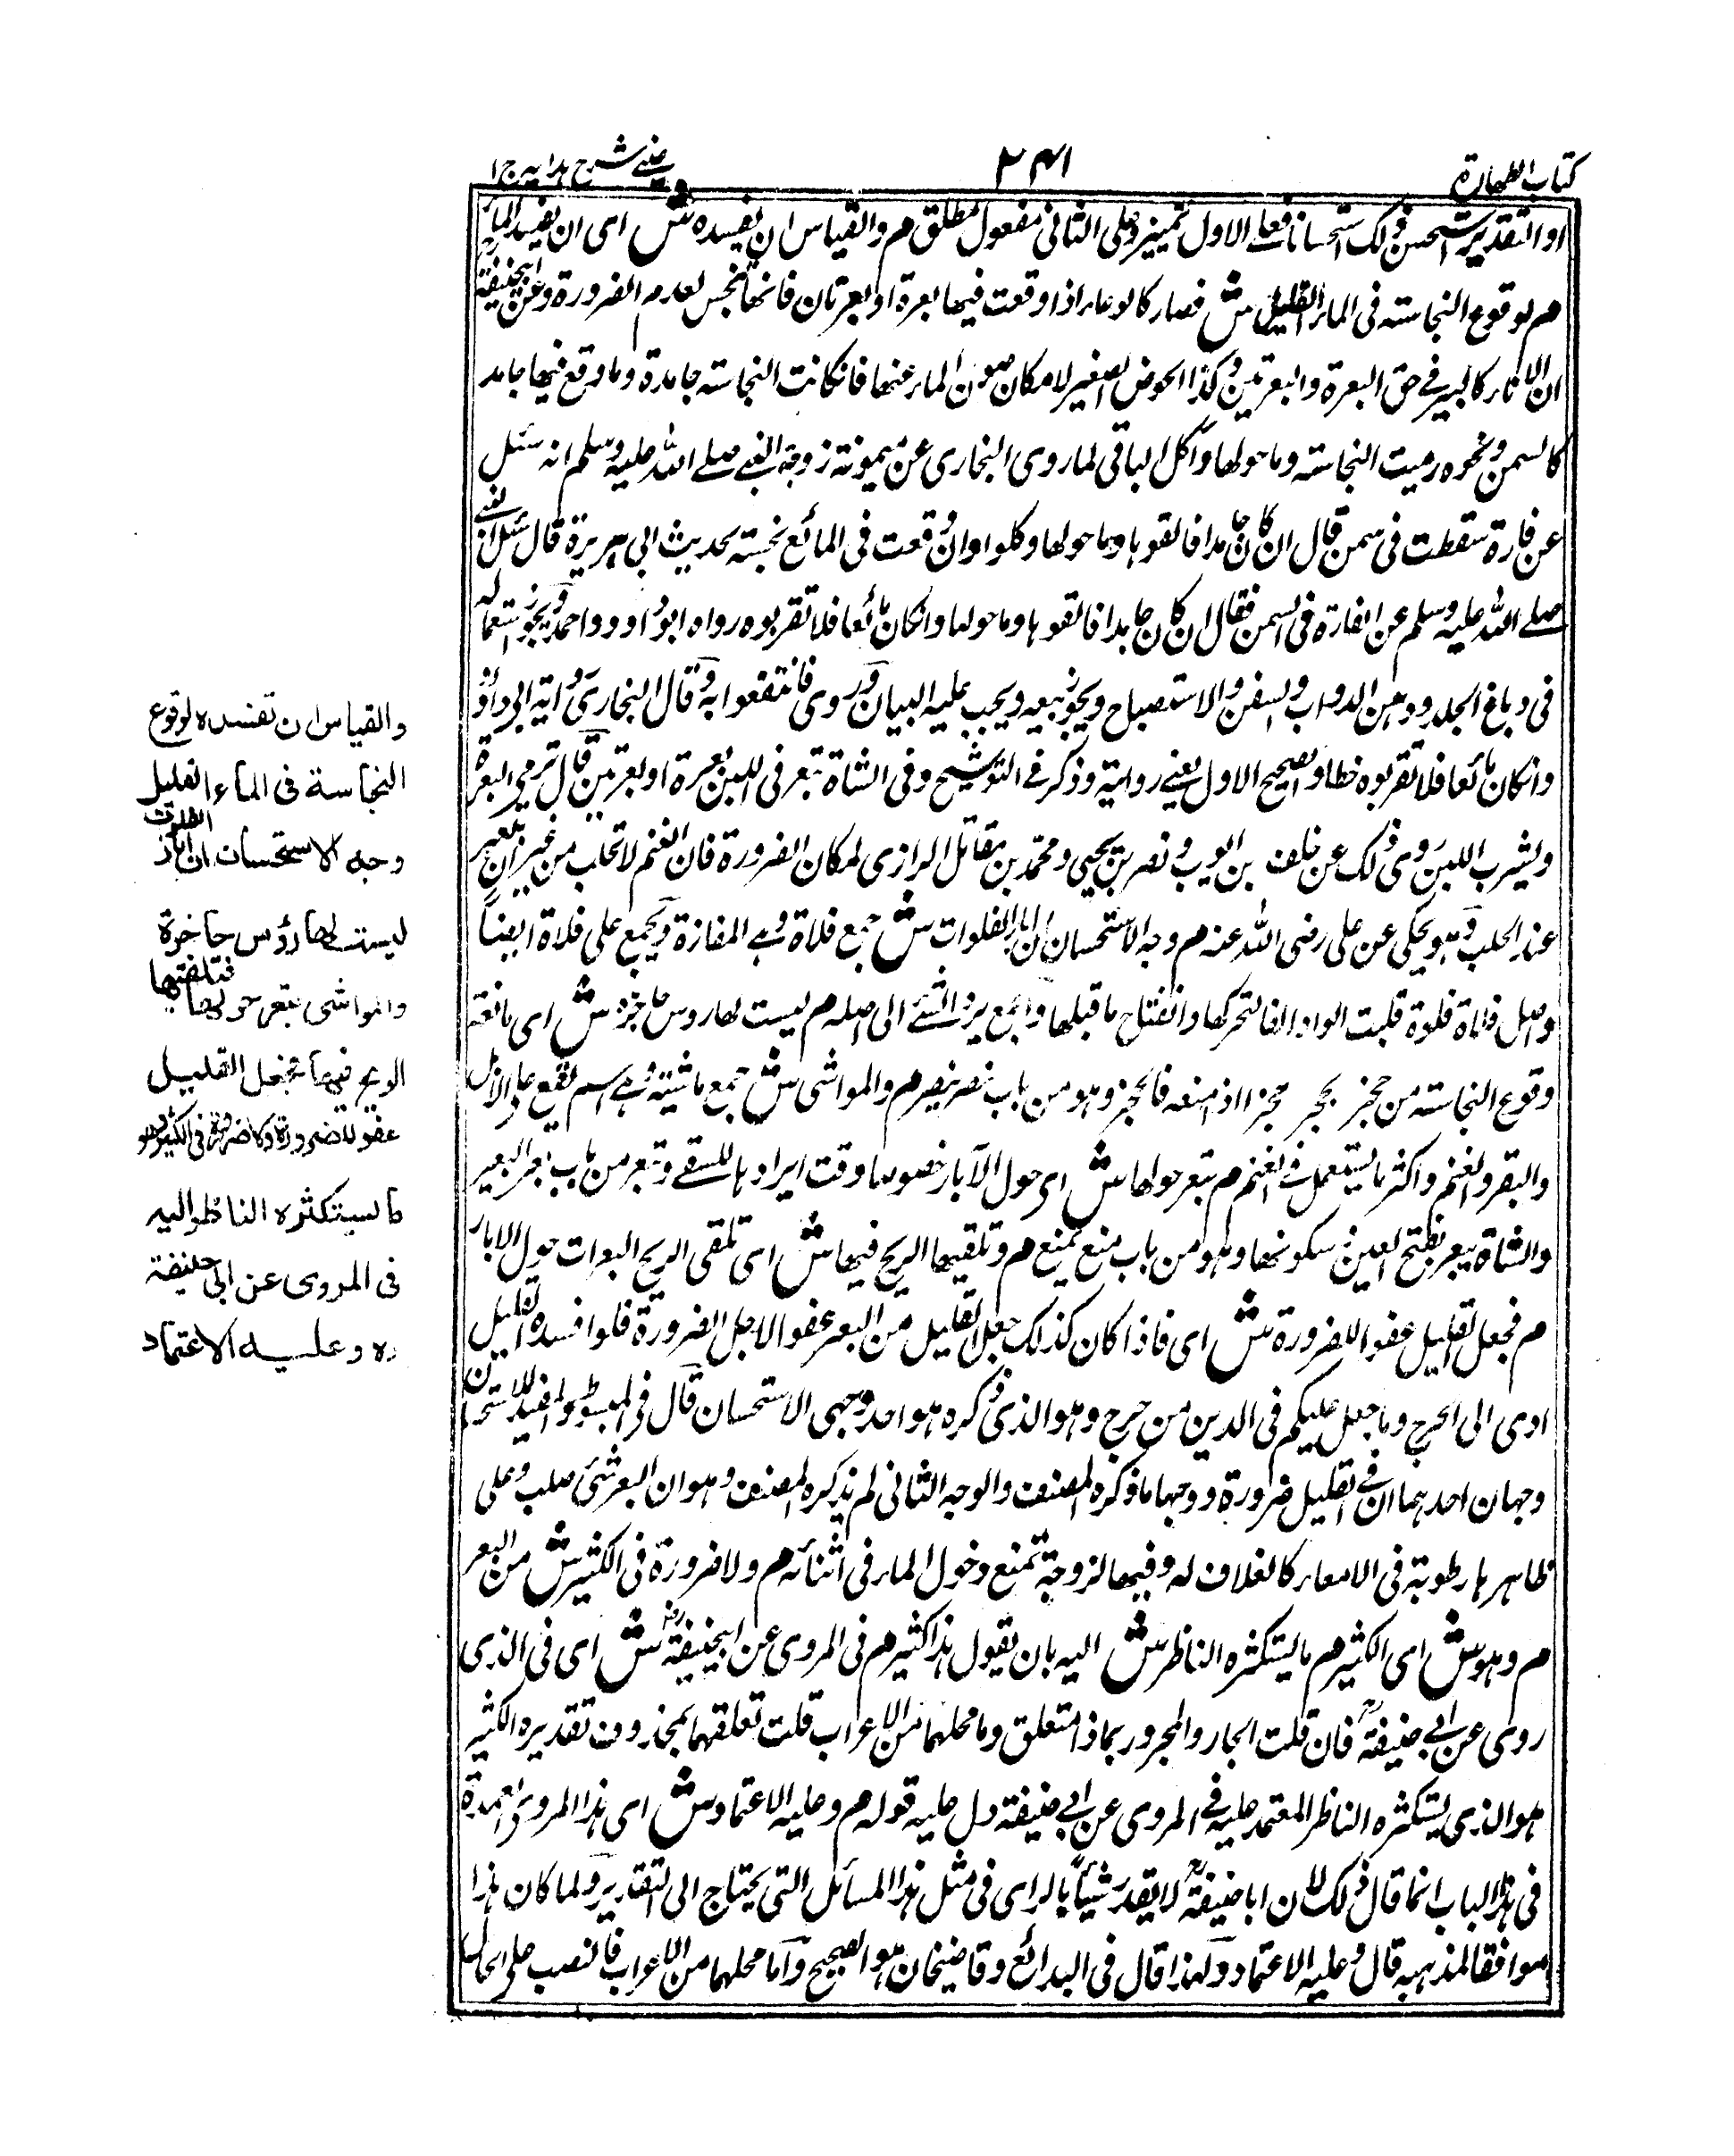 كتاب الطهارة
٢٤١
عينى شرح هدايه ج ١
او التقدير استحسن ذلك استحسانا فعلى الاول تمييز وعلى الثانى مفعول مطلق م والقياس ان يفسده ش اى ان يفسد الماء
م لوقوع النجاسته فى الماء القليل ش فصار كالوعاء اذا وقعت فيها بعرة او بعرتان فانها تنجس لعدم الضرورة وعن ابيحنيفة
ان الاناء كالبير فى حق البعرة والبعرتين وكذا الحوض الصغير لامكان صون الماء عنها فانكانت النجاسته جامدة وما وقع فيها جامد
كالسمن ونحوه رميت النجاسته وما حولها واكل الباقى لما روى البخارى عن ميمونة زوجة النبى صلى الله عليه وسلم انه سئل
عن فارة سقطت فى سمن قال ان كان جامدا فالقوها وما حولها وكلوا وان وقعت فى المائع نجسته بحديث ابى هريرة قال سئل النبى
صلى الله عليه وسلم عن الفارة فى السمن فقال ان كان جامدا فالقوها وما حولها وانكان مائعا فلا تقربوه رواه ابو داوود واحمد ويجوز استعماله
فى دباغ الجلد ودهن الدواب والسفن والاستصباح ويجوز بيعه ويجب عليه البيان وروى فانتفعوا به وقال البخارى رواية ابى داؤد
وانكان مائعا فلا تقربوه خطاء والصحيح الاول يعنى رواية وذكر فى التوشيح وفى الشاة تبعر فى اللبن بعرة او بعرتين قال ترمى البعرة
ويشرب اللبن روى ذلك عن خلف بن ايوب ونصر بن يحيى ومحمد بن مقاتل الرازى لمكان الضرورة فان الغنم لا تحلب من غير ان تبعر
عند الحلب وهو يحكى عن على رضى الله عنه م وجه الاستحسان ان ابار الفلوات ش جمع فلاة وهى المفازة ويجمع على فلاة ايضا
واصل فلاة فلوة قلبت الواو الفا لتحركها وانفتاح ما قبلها والجمع يرد الشئ الى اصله م ليست لها روس حاجزة ش اى مانعة
وقوع النجاسته من حجز يحجز حجزا اذا منعه فانحجز وهو من باب نصر ينصر م والمواشى ش جمع ماشية وهى اسم يقع على الابل
والبقر والغنم واكثر ما يستعمل فى الغنم م تبعر حولها ش اى حول الآبار خصوصا وقت ايرادها للسقى وتبعر من باب بعر البعير
والشاة يبعر بفتح العين وسكونها وهو من باب منع يمنع م وتلقيها الريح فيها ش اى تلقى الريح البعرات حول الابار
م فجعل القليل عفوا للضرورة ش اى فاذا كان كذلك جعل القليل من البعر عفوا لاجل الضرورة فلو افسده القليل
ادى الى الحرج وما جعل عليكم فى الدين من حرج وهو الذى ذكره هو احد وجهى الاستحسان قال فى المبسوط والمفيد للاستحسان
وجهان احدهما ان فى القليل ضرورة ووجهها ما ذكره المصنف والوجه الثانى لم يذكره المصنف وهو ان البعر شئ صلب وعلى
ظاهرها رطوبة فى الامعاء كالغلاف له وفيها لزوجة تمنع دخول الماء فى اثنائه م ولا ضرورة فى الكثير ش من البعر
م وهو ش اى الكثير م ما يستكثره الناظر ش اليه بان يقول هذا كثير م فى المروى عن ابيحنيفة رض ش اى فى الذى
روى عن ابى حنيفة فان قلت الجار والمجرور بماذا متعلق وما محلهما من الاعراب قلت تعلقهما بمحذوف تقديره الكثير
هو الذى يستكثره الناظر المعتمد عليه فى المروى عن ابى حنيفة دل عليه قوله م وعليه الاعتماد ش اى هذا المروى العمدة
فى هذا الباب انما قال ذلك لان ابا حنيفة لا يقدر شيئاً بالراى فى مثل هذا المسائل التى يحتاج الى التقدير ولما كان هذا
موافقا لمذهبه قال وعليه الاعتماد ولهذا قال فى البدائع وقاضيخان هو الصحيح واما محلهما من الاعراب فالنصب على الحال
والقياس ان تفسده لوقوع
النجاسة فى الماء القليل
وجه الاستحسان ان ابار الفلوات
ليست لها رؤس حاجزة
والمواشى تبعر حولها فتلقيها
الريح فيها فجعل القليل
عفوا للضرورة ولا ضرورة فى الكثير وهو
ما يستكثره الناظر اليه
فى المروى عن ابى حنيفة
ره وعليه الاعتماد